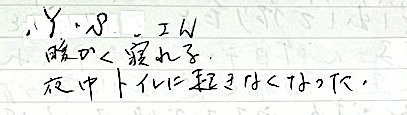 Y.S. IW
暖かく寝れる.
夜中トイレに起きなくなった.